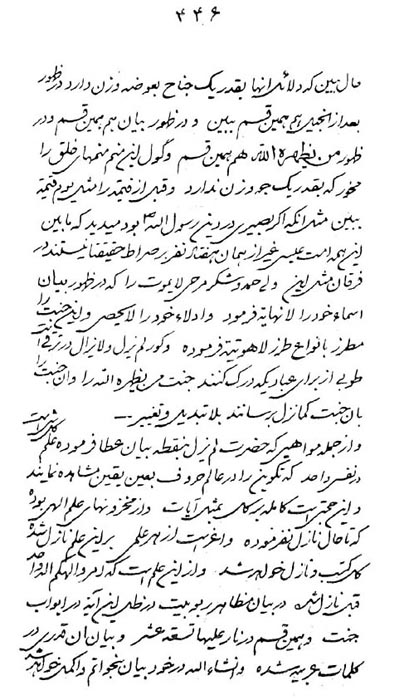 ۴۴۶
حال ببین که دلائل انها بقدر یک جناح بعوضه وزن دارد در ظهور
بعد از انجیل هم همین قسم ببین و در ظهور بیان هم همین قسم و در
ظهور من یظهره الله هم همین قسم و گول این منم منمهای خلق را
مخور که بقدر یک جو وزن ندارد و قبل از قیمة را مثل یوم قیمة
ببین مثل انکه اکر بصیری در دین رسول الله بود میدید که مابین
این همه امت عیسی غیر از همان هفتاد نفر بر صراط حقیقتا نیستند در
فرقان مثل این ولی حمد و شکر مر حی لا یموت را که در ظهور بیان
اسماء خود را لا نهایة فرمود و ادلاء خود را لا یحصی و این جنت را
مطرز بانواع طرز لاهوتیة فرموده و کور لم یزل و لا یزال در ترقی است
طوبی از برای عبادیکه درک کنند جنت من یظهره الله را و ان جنت را
بان جنت کما نزل رسانند بلا تبدیل و تغییر
و از جمله مواهبی که حضرت لم یزل بنقطه بیان عطا فرموده علم کلشئ است
در نفس واحد که تکوین را در عالم حروف بعین یقین مشاهده نمایند
و این حجتیت کامله بر کل بمثل آیات و از مخزونهای علم الهی بوده
که تا حال نازل نفرموده و اعز است از هر علمی بر این علم نازل شده
کل کتب و نازل خواهد شد و از این علم است که امر و الهکم اله واحد
قبل نازل شده در بیان مظاهر ربوبیت در ظل این آیه در ابواب
جنت و همین قسم در نار علیها تسعة عشر و بیان ان قدری در
کلمات عربیه شده و انشاء الله در خود بیان بنحو اتم و اکمل خواهد شد